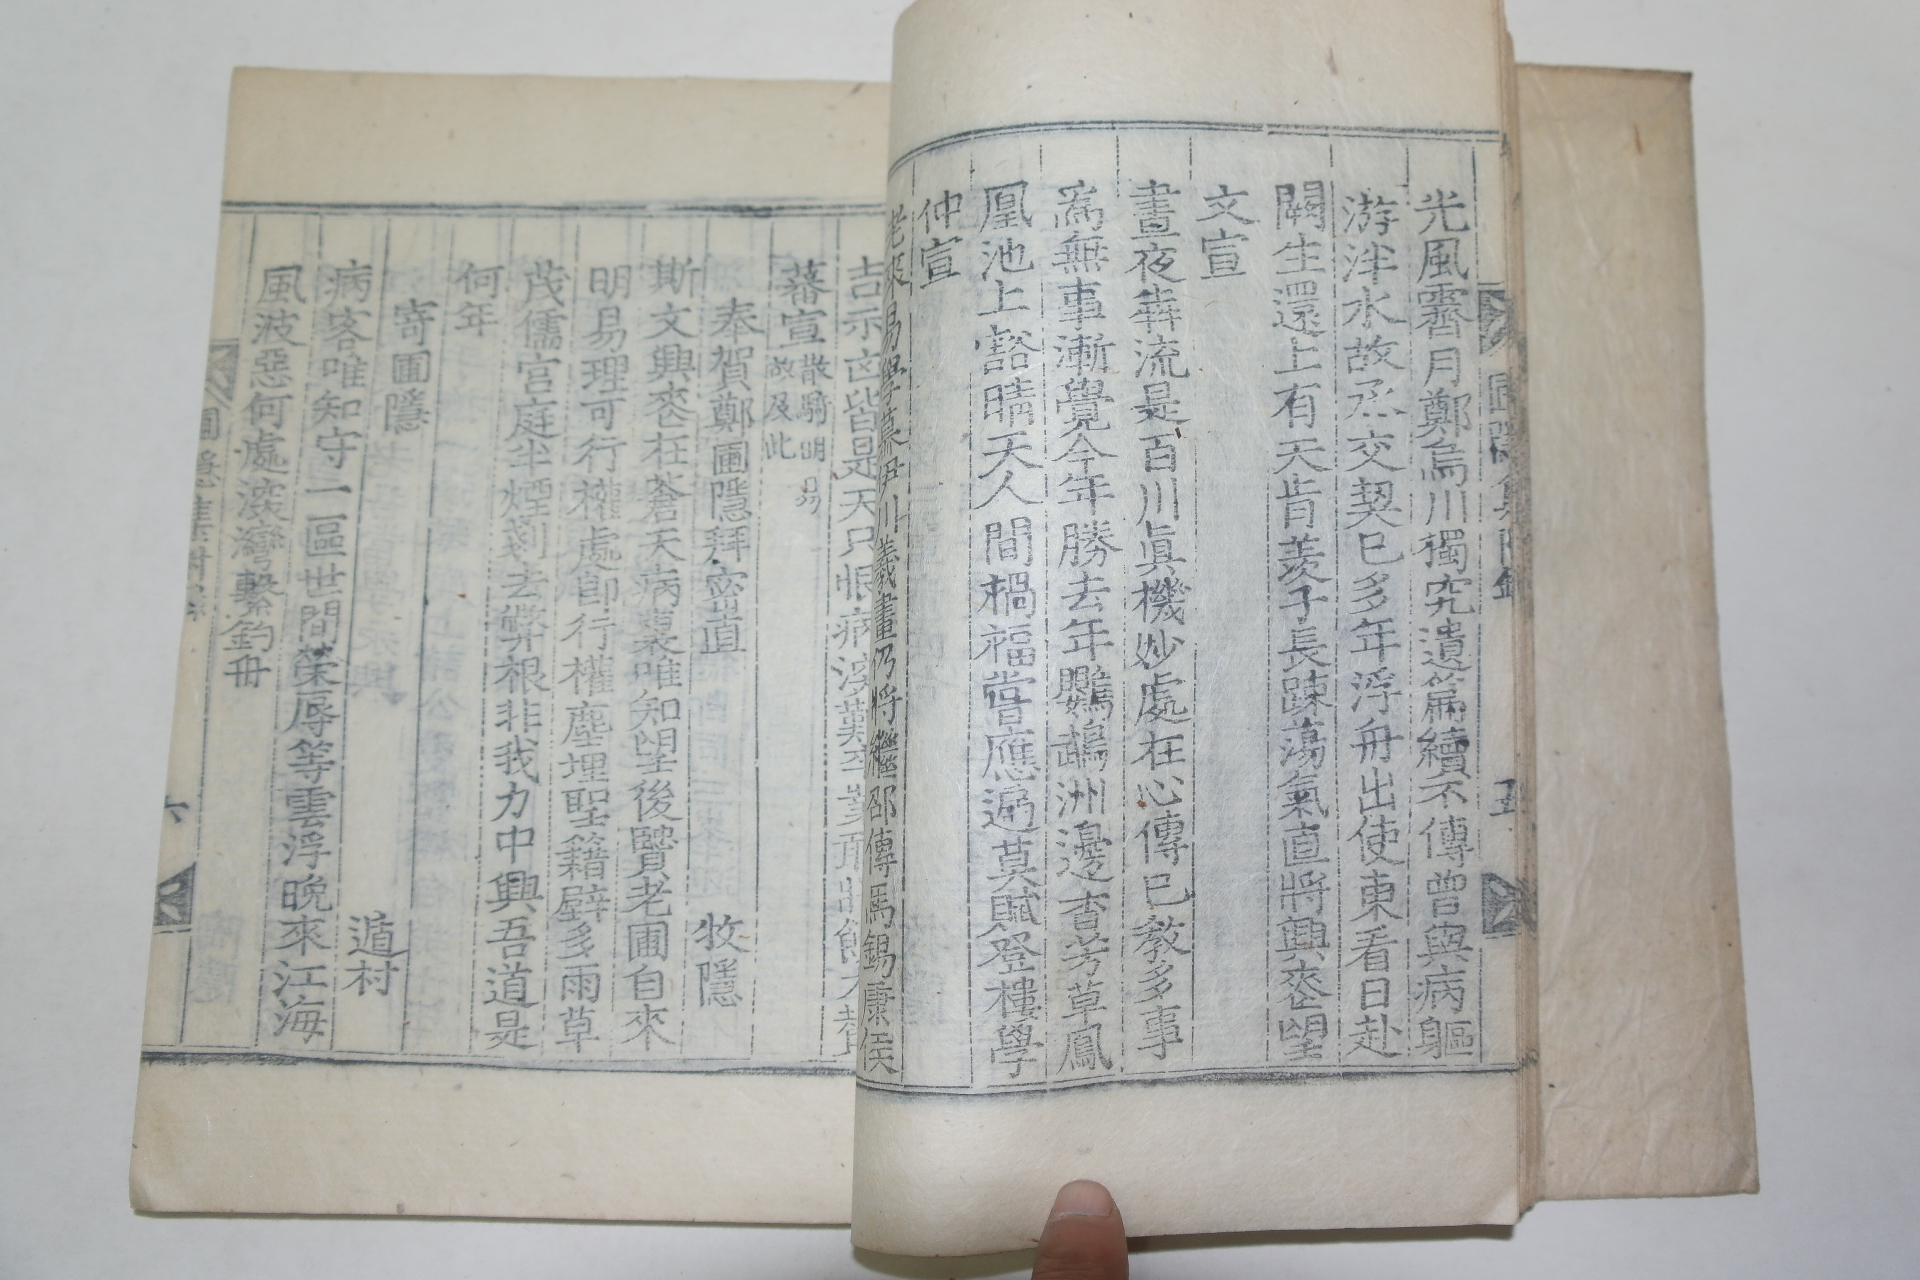 圃隱集附錄
五
光風霽月鄭烏川獨究遺篇續不傳曾與病軀
游泮水故丞交契已多年浮舟出使東看日赴
闕生還上有天肯羨子長疎蕩氣直將興來望
文宣
晝夜犇流是百川眞機妙處在心傳已敎多事
爲無事漸覺今年勝去年鸚鵡洲邊杳芳草鳳
凰池上豁晴天人間榾福嘗應遍莫賦登樓學
仲宣
老來易學慕伊川羲畫仍將繼邵傳馬錫康侯
吉示凶皆是天只恨病深
蕃宣
散騎明易
故及此
奉賀鄭圃隱拜密直
牧隱
斯文興來在蒼天病裏唯知望後賢老圃自來
明易理可行權處卽行權塵埋聖籍壁多雨草
茂儒宮庭半煙剗去弊根非我力中興吾道是
何年
寄圃隱
遁村
病客唯知守一區世間榮辱等雲浮晩來江海
風波惡何處深灣繫釣舟
圃隱集附錄
六